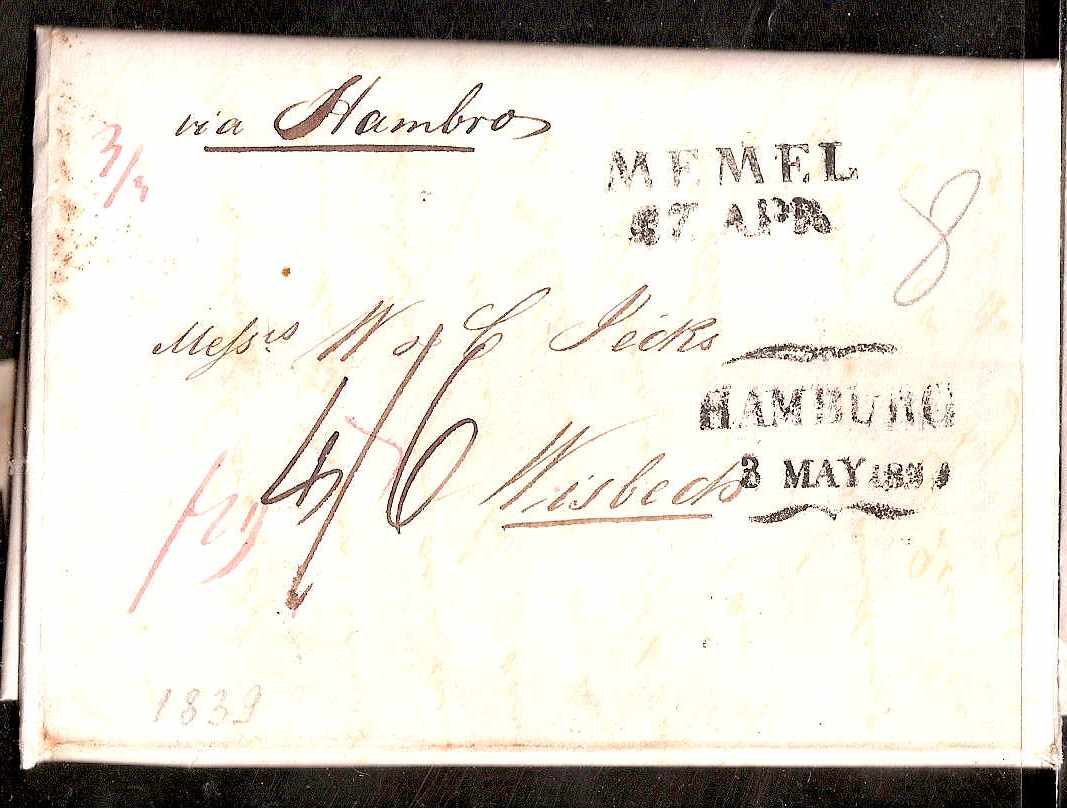 via Hambro
3/
MEMEL
27 APR
8
Messrs W & C Jecks
4/6
HAMBURG
Wisbech
3 MAY 1839
1839